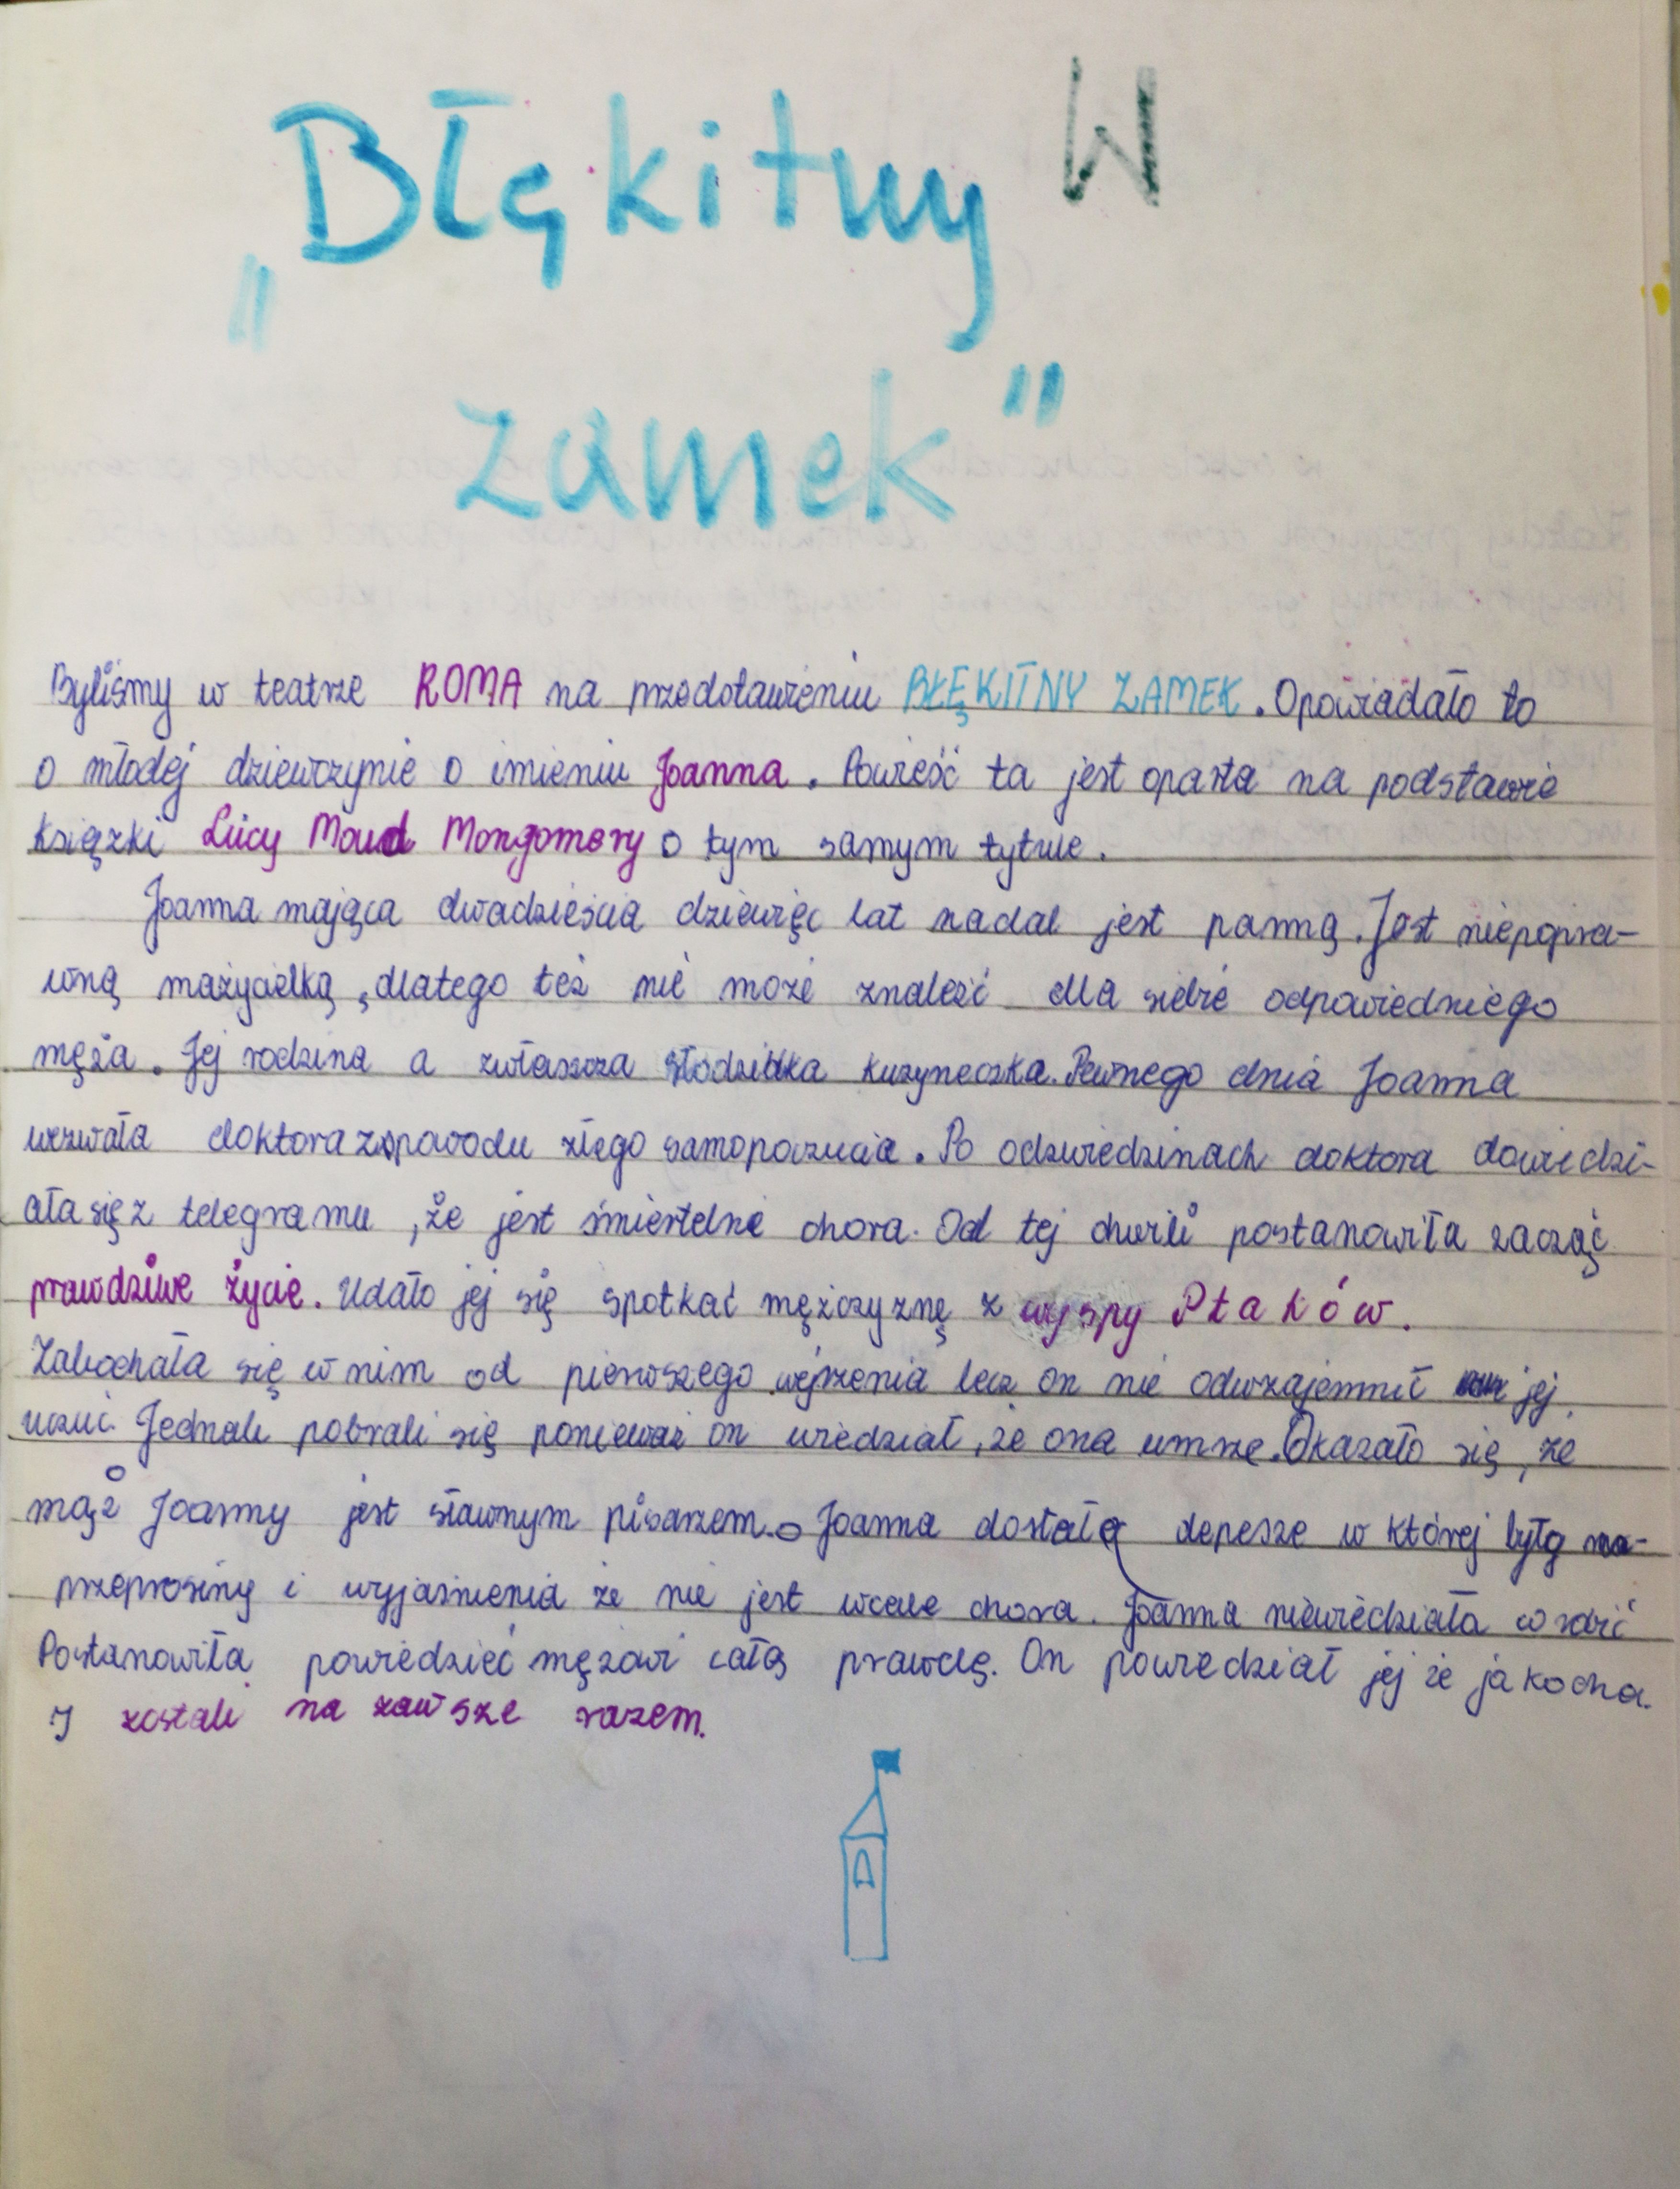 W
„Błękitny
zamek"
Byliśmy w teatrze ROMA na przedstawieniu BŁĘKITNY ZAMEK. Opowiadało to
o młodej dziewczynie o imieniu Joanna. Powieść ta jest oparta na podstawie
książki Lucy Moud Mongomery o tym samym tytule.
Joanna mająca dwadzieścia dziewięć lat nadal jest panną. Jest niepopra-
wną mażycielką, dlatego też nie może znaleźć dla siebie odpowiedniego
męża. Jej rodzina a zwłaszcza słodziutka kuzyneczka. Pewnego dnia Joanna
wezwała doktora z powodu złego samopoczucia. Po odzwiedzinach doktora dowiedzi-
ała się z telegramu, że jest śmiertelne chora. Od tej chwili postanowiła zacząć
prawdziwe życie. Udało jej się spotkać mężczyznę z wyspy Ptaków.
Zakochała się w nim od pierwszego wejrzenia lecz on nie odwzajemnił jej
uczuć. Jednak pobrali się ponieważ on wiedział, że ona umrze. Okazało się, że
mąż Joanny jest sławnym pisarzem. Joanna dostała depesze w której były
przeprosiny i wyjaśnienia że nie jest wcale chora. Joanna niewiedziała co robić
Postanowiła powiedzieć mężowi całą prawdę. On powiedział jej że ja kocha.
I zostali na zawsze razem.